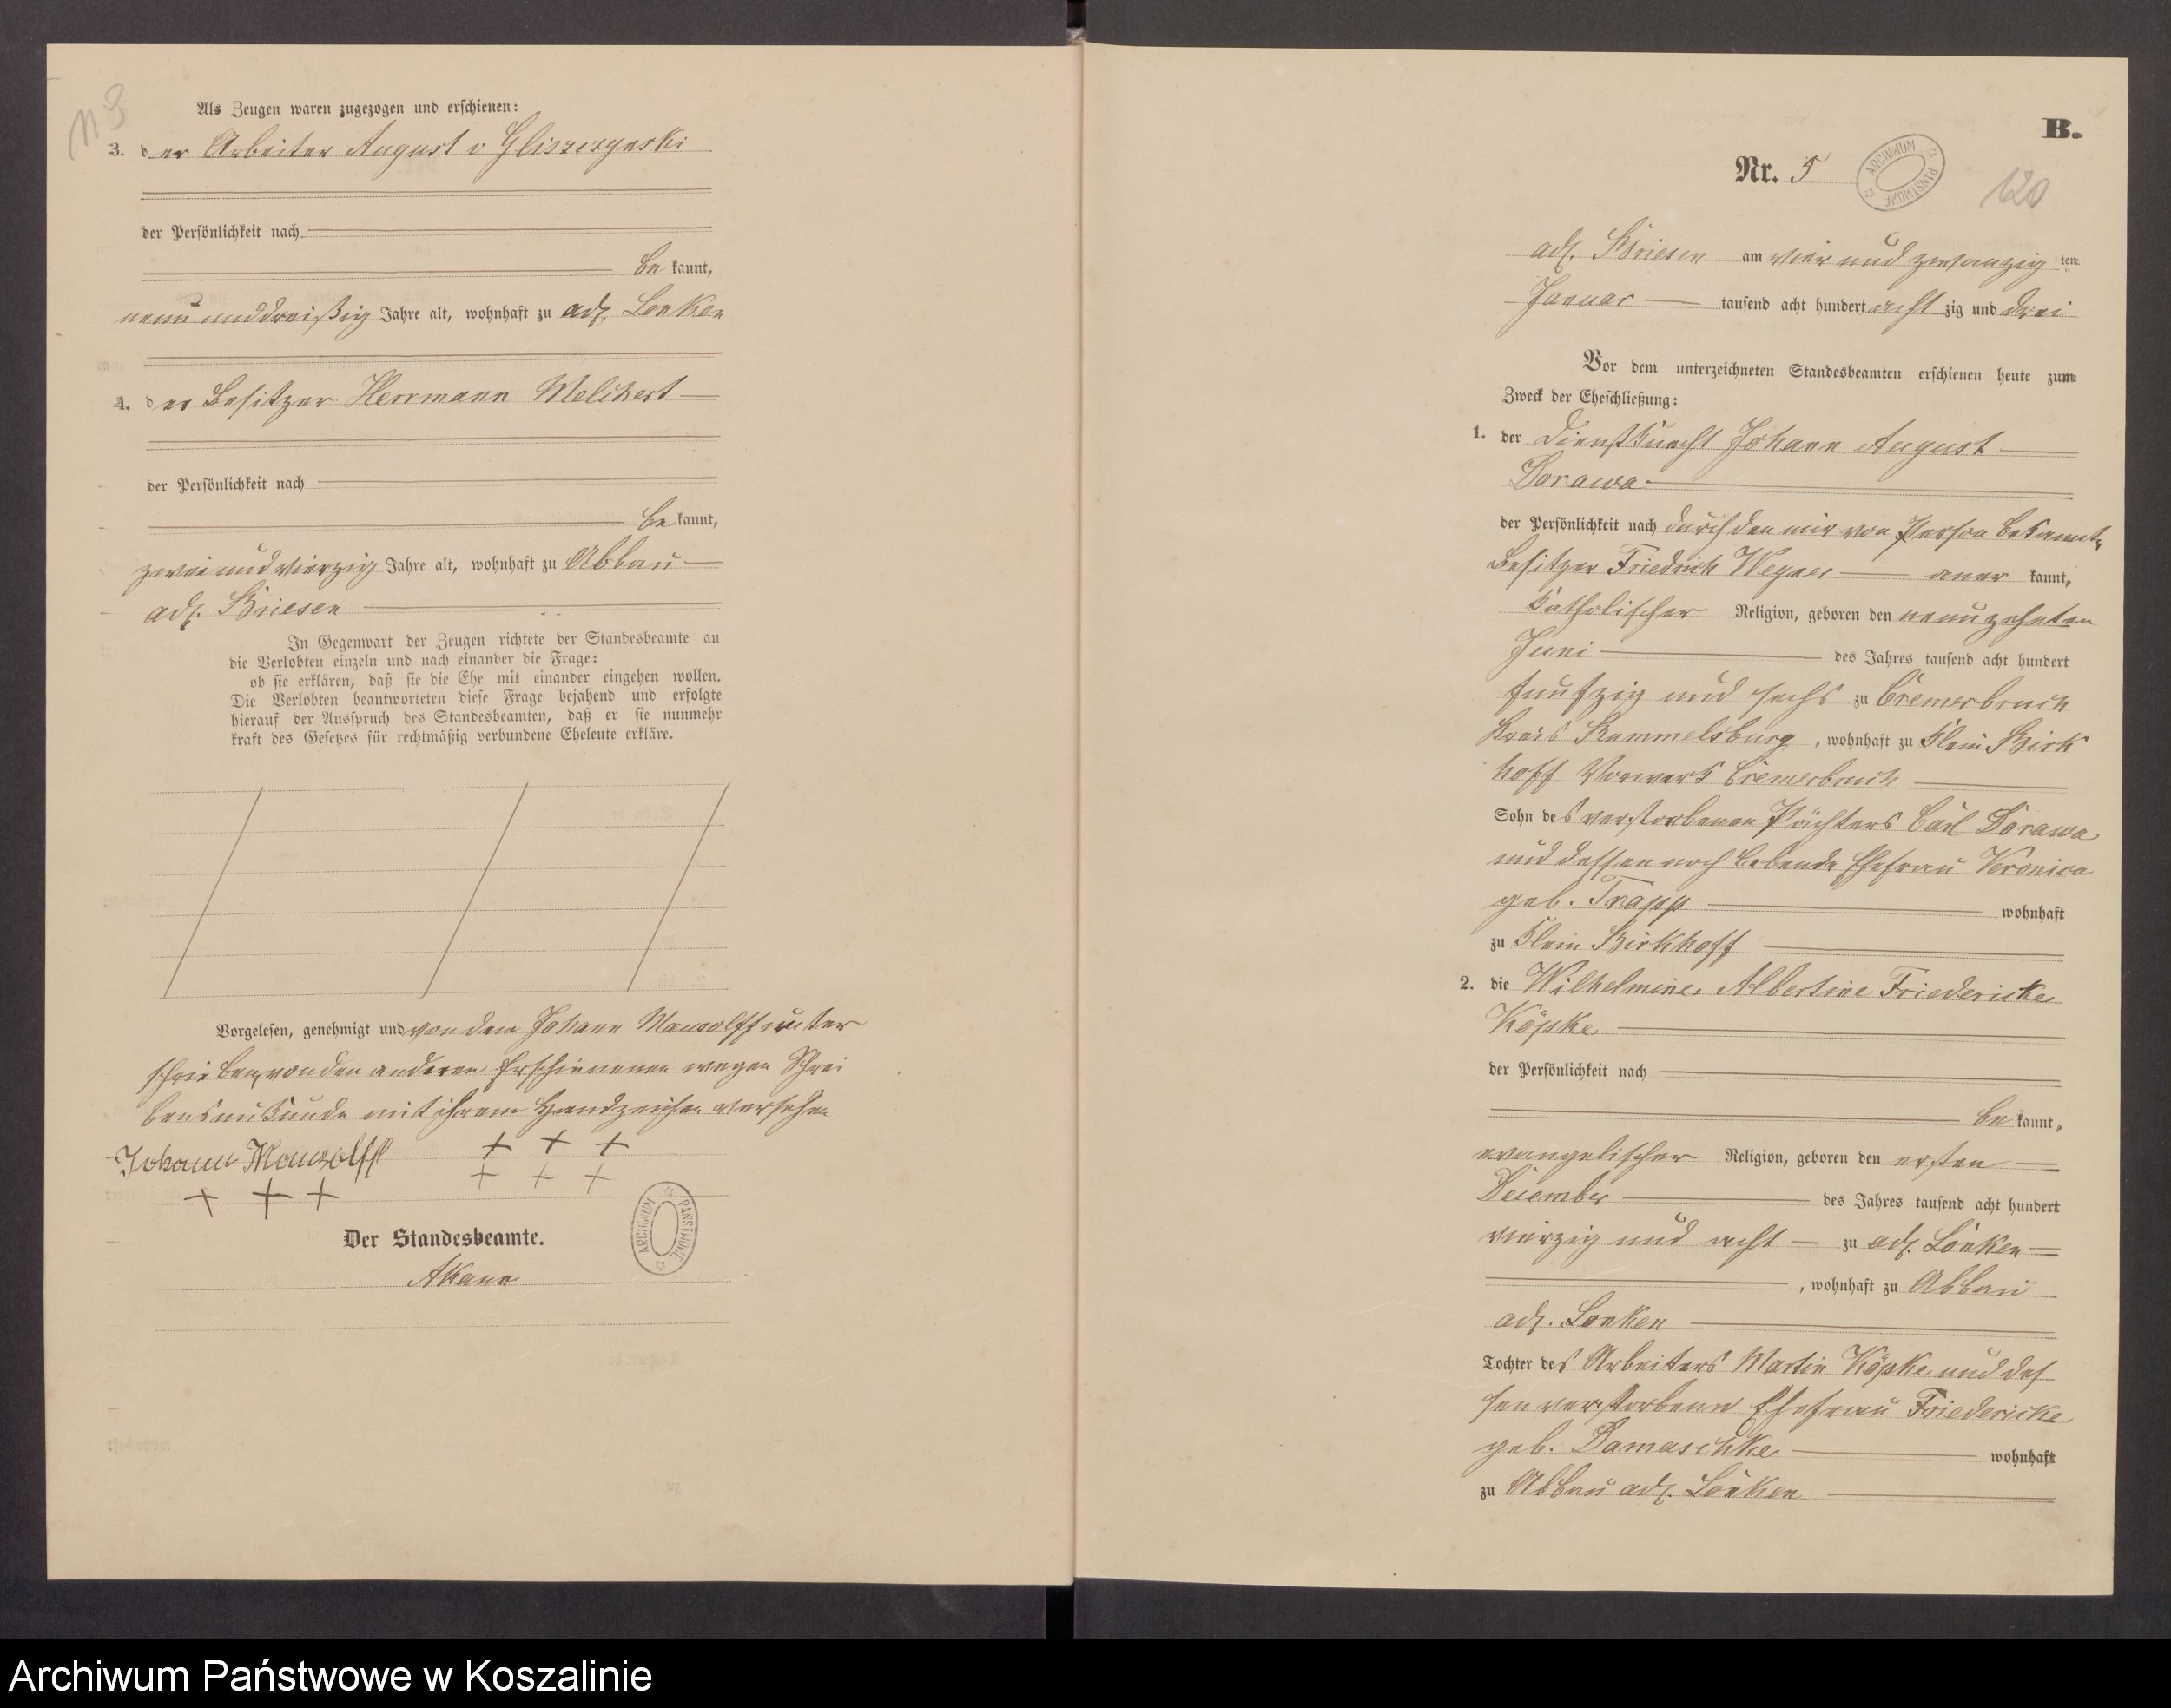 Als Zeugen waren zugezogen und erschienen:
3. der Arbeiter August v Gliszczynski
der Persönlichkeit nach
be kannt,
neun und dreißig Jahre alt, wohnhaft zu adl. Lonken
4. der Besitzer Herrmann Melchert
der Persönlichkeit nach
be kannt,
zwei und vierzig Jahre alt, wohnhaft zu Abbau
adl. Briesen
In Gegenwart der Zeugen richtete der Standesbeamte an
die Verlobten einzeln und nach einander die Frage:
ob sie erklären, daß sie die Ehe mit einander eingehen wollen.
Die Verlobten beantworteten diese Frage bejahend und erfolgte
hierauf der Ausspruch des Standesbeamten, daß er sie nunmehr
kraft des Gesetzes für rechtmäßig verbundene Eheleute erkläre.
Vorgelesen, genehmigt und von dem Johann Manzolff unter
schrieben, von den anderen Erschienenen wegen Schrei
bensunkunde mit ihrem Handzeichen versehen
Johann Manzolff + + +
+ + +
+ + +
Der Standesbeamte.
ARCHIWUM PAŃSTWOWE
B.
Nr. 5
ARCHIWUM PAŃSTWOWE
120
adl. Briesen am vier und zwanzig ten
Januar tausend acht hundert acht zig und drei
Vor dem unterzeichneten Standesbeamten erschienen heute zum
Zweck der Eheschließung:
1. der Dienstknecht Johann August
Dorawa
der Persönlichkeit nach durch den mir von Person bekannten
Besitzer Friedrich Wegner aner kannt,
katholischer Religion, geboren den neunzehnten
Juni des Jahres tausend acht hundert
fünfzig und sechs zu Cremerbruch
Kreis Rummelsburg, wohnhaft zu Klein Birk
hoff Vorwerk Cremerbruch
Sohn des verstorbenen Pächters Carl Dorawa
und dessen noch lebende Ehefrau Veronica
geb. Trapp wohnhaft
zu Klein Birkhoff
2. die Wilhelmine, Albertine Friedericke
Köpke
der Persönlichkeit nach
be kannt,
evangelischer Religion, geboren den ersten
December des Jahres tausend acht hundert
vierzig und acht zu adl. Lonken
, wohnhaft zu Abbau
adl. Lonken
Tochter des Arbeiters Martin Köpke und des
sen verstorbene Ehefrau Friedericke
geb. Damaschke wohnhaft
zu Abbau adl. Lonken
Archiwum Państwowe w Koszalinie